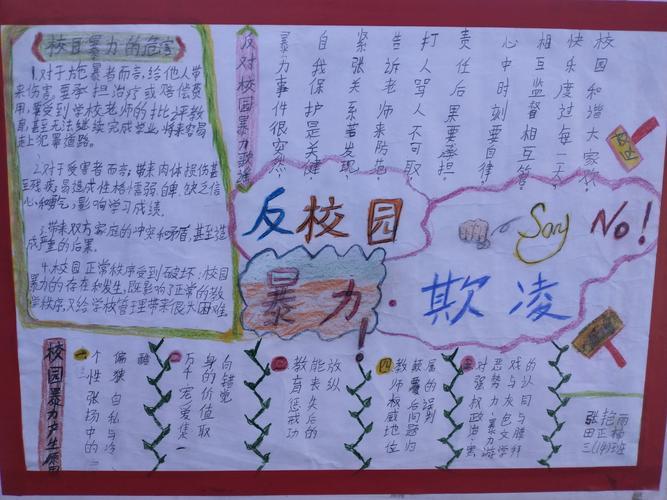 校园暴力的危害
1.对于施暴者而言,给他人带
来伤害,要承担治疗或赔偿费
用,要受到学校老师的批评教
育,甚至无法继续完成学业,将来容易
走上犯罪道路。
2.对于受害者而言,带来肉体损伤甚
至残疾,易造成性格懦弱自卑,缺乏信
心和勇气,影响学习成绩。
3.带来双方家庭的冲突和矛盾,甚至造
成严重的后果。
4.校园正常秩序受到破坏;校园
暴力的存在和发生,既影响了正常的教
学秩序,又给学校管理带来很大困难。
反对校园暴力歌谣
校园和谐大家欢,
快乐度过每一天。
相互监督相互管,
心中时刻要自律。
责任后果要承担,
打人骂人不可取。
告诉老师来防范,
紧张关系早发现。
自我保护是关键,
暴力事件很突然。
反校园
暴力!
Say No!
欺凌
校园暴力产生原因
一
个性张扬中的
偏狭自私与冷
酷
二
万千宠爱集一
身的价值取
向错觉
三
教育惩戒功
能丧失后的
放纵
四
教师权威地位
颠覆后问题归
属的误判
五
对强权政治、黑
恶势力、暴力游
戏与灰色文学
的认同与膜拜